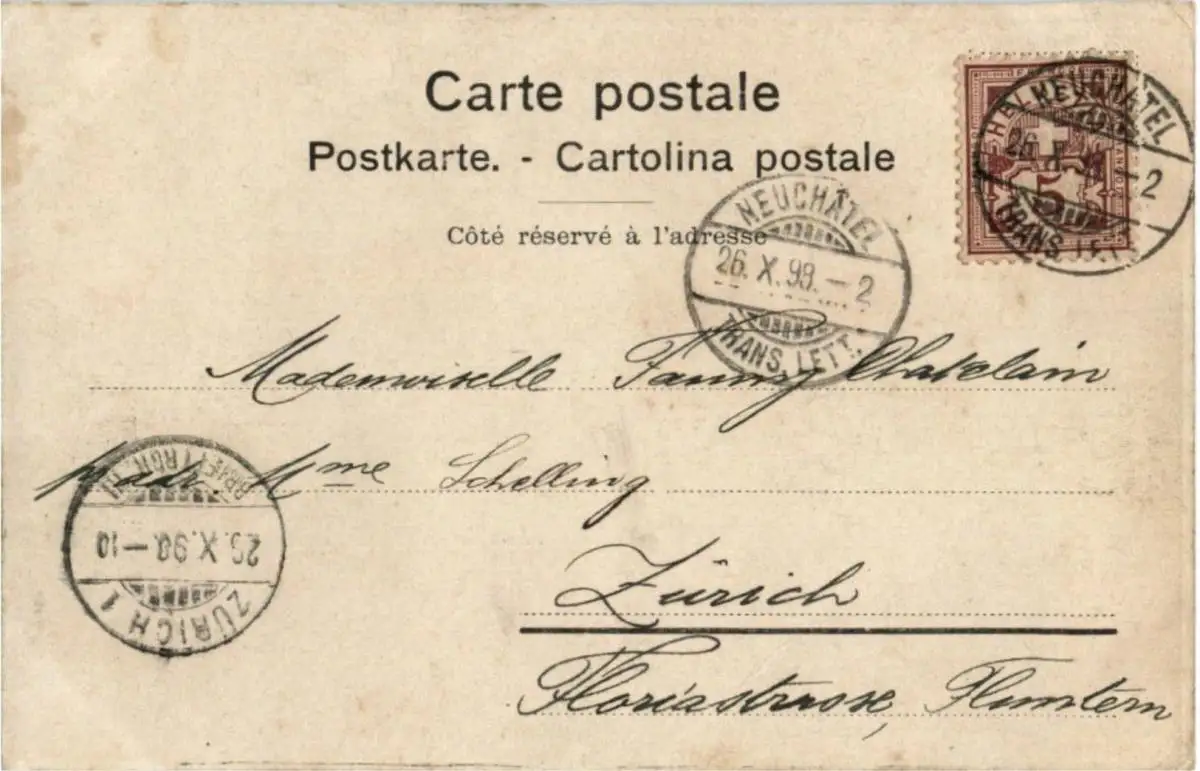 Carte postale
Postkarte. - Cartolina postale
Côté réservé à l'adresse
NEUCHÂTEL
26. X. 98. – 2
TRANS. LETT.
NEUCHÂTEL
26 X – 2
TRANS. LETT.
5
Mademoiselle Fanny Chatelain
p/adr Mme Schelling
Zürich
Floriastrasse, Fluntern
ZÜRICH 1
26. X. 98. – 10